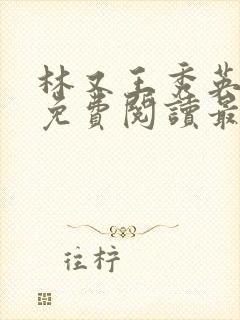 林又王秀英
免費閱讀最
往柠